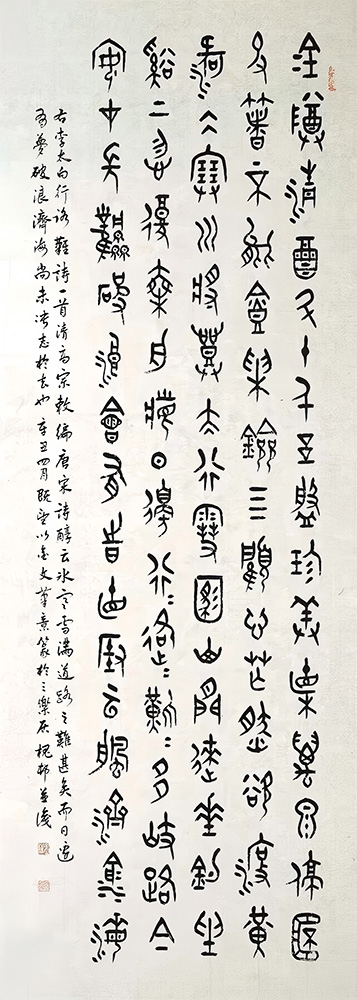 金樽清酒斗十千玉盤珍羞直萬錢停杯
投箸不能食拔劍四顧心茫然欲渡黃
河冰塞川將登太行雪滿山閒來垂釣坐
溪上忽復乘舟夢日邊行=路=難=多岐路今
安在長風破浪會有時直挂雲帆濟滄海
右李太白行路難詩一首清高宗敕編唐宋詩醇云冰塞雪滿道路之難甚矣而日邊
有夢破浪濟海尚未決志於去也辛丑四月既望以金文筆意篆於三樂居槐邨並識